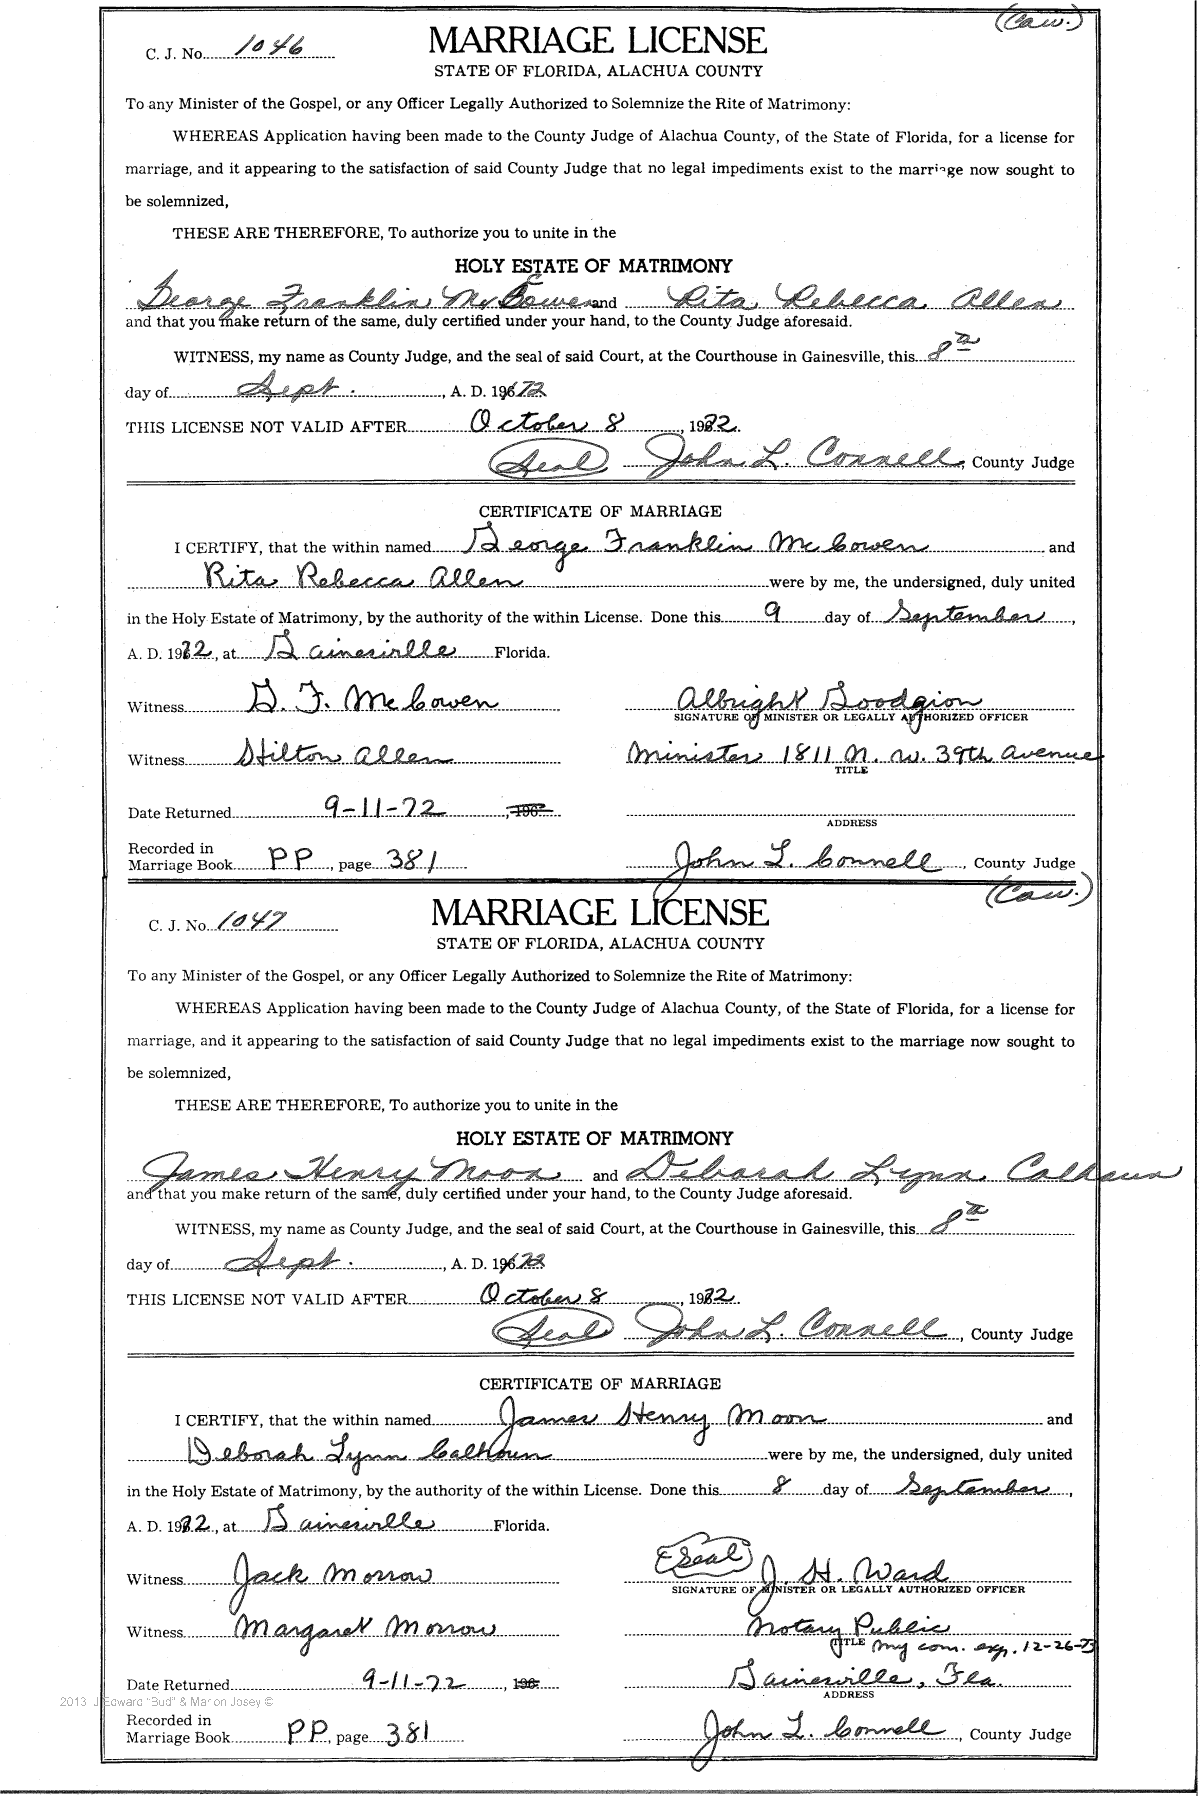 (Caw.)
C. J. No. 1046
MARRIAGE LICENSE
STATE OF FLORIDA, ALACHUA COUNTY
To any Minister of the Gospel, or any Officer Legally Authorized to Solemnize the Rite of Matrimony:
WHEREAS Application having been made to the County Judge of Alachua County, of the State of Florida, for a license for
marriage, and it appearing to the satisfaction of said County Judge that no legal impediments exist to the marriage now sought to
be solemnized,
THESE ARE THEREFORE, To authorize you to unite in the
HOLY ESTATE OF MATRIMONY
George Franklin McCowen and Rita Rebecca Allen
and that you make return of the same, duly certified under your hand, to the County Judge aforesaid.
WITNESS, my name as County Judge, and the seal of said Court, at the Courthouse in Gainesville, this 8th
day of Sept. , A. D. 1972
THIS LICENSE NOT VALID AFTER October 8 , 1972.
(Seal) John L. Connell, County Judge
CERTIFICATE OF MARRIAGE
I CERTIFY, that the within named George Franklin McCowen and
Rita Rebecca Allen were by me, the undersigned, duly united
in the Holy Estate of Matrimony, by the authority of the within License. Done this 9 day of September,
A. D. 1972, at Gainesville Florida.
Witness G. F. McCowen Albright Goodgion
SIGNATURE OF MINISTER OR LEGALLY AUTHORIZED OFFICER
Witness Hilton Allen Minister 1811 N. W. 39th Avenue
TITLE
Date Returned 9-11-72 , 196
ADDRESS
Recorded in
Marriage Book PP, page 381 John L. Connell, County Judge
(Caw.)
C. J. No. 1047
MARRIAGE LICENSE
STATE OF FLORIDA, ALACHUA COUNTY
To any Minister of the Gospel, or any Officer Legally Authorized to Solemnize the Rite of Matrimony:
WHEREAS Application having been made to the County Judge of Alachua County, of the State of Florida, for a license for
marriage, and it appearing to the satisfaction of said County Judge that no legal impediments exist to the marriage now sought to
be solemnized,
THESE ARE THEREFORE, To authorize you to unite in the
HOLY ESTATE OF MATRIMONY
James Henry Moon and Deborah Lynn Calhoun
and that you make return of the same, duly certified under your hand, to the County Judge aforesaid.
WITNESS, my name as County Judge, and the seal of said Court, at the Courthouse in Gainesville, this 8th
day of Sept. , A. D. 1972
THIS LICENSE NOT VALID AFTER October 8 , 1972.
(Seal) John L. Connell, County Judge
CERTIFICATE OF MARRIAGE
I CERTIFY, that the within named James Henry Moon and
Deborah Lynn Calhoun were by me, the undersigned, duly united
in the Holy Estate of Matrimony, by the authority of the within License. Done this 8 day of September,
A. D. 1972, at Gainesville Florida.
Witness Jack Morrow (Seal) J. H. Ward
SIGNATURE OF MINISTER OR LEGALLY AUTHORIZED OFFICER
Witness Margaret Morrow Notary Public
TITLE My com. exp. 12-26-73
Date Returned 9-11-72 , 196 Gainesville, Fla.
ADDRESS
2013 J Edward "Bud" & Marion Josey ©
Recorded in
Marriage Book PP, page 381 John L. Connell, County Judge